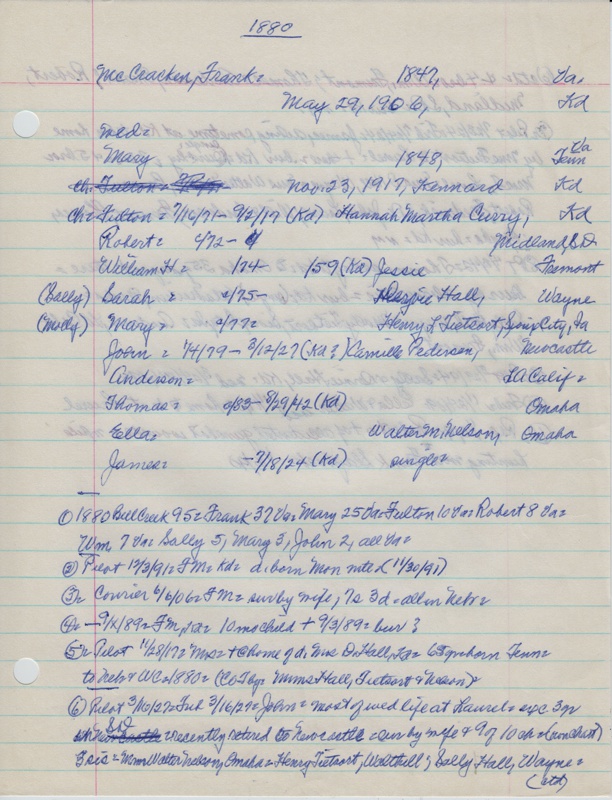 1880
McCracken, Frank = 1847, Va.
May 29, 1906, Kd
wed =
Mary 1848, Va Tenn
Nov. 23, 1917, Kennard Kd
Ch = Fulton = 7/16/71 - 9/2/17 (Kd) Hannah Martha Curry, Kd
Robert = c/72 - Midland, S.D.
William H = 1/74 - 1/59 (Kd) Jessie Fremont
(Sally) Sarah = c/75 - Hall, Wayne
(Mody) Mary = c/77 = Henry L Tietsort, Sioux City, Ia
John = 1/4/79 - 3/12/27 (Ka?) Camille Pedersen, Newcastle
Anderson = LA Calif =
Thomas = c/83 - 8/29/42 (Kd) Omaha
Ella = Walter M. Nelson, Omaha
James = - 7/18/24 (Kd) single =
① 1880 Bell Creek 95 = Frank 37 Va = Mary 25 Va = Fulton 10 Va = Robert 8 Va =
Wm 7 Va = Sally 5, Mary 3, John 2, all Va =
② Pilot 12/3/91 = FM = Kd = d. born Mon nite (11/30/91)
③ = Courier 6/6/06 = FM = sur by wife, 7s 3d = all in Nebr =
④ = - 9/x/89 = FM, 10 mo child + 9/3/89 = bur?
⑤ = Pilot 11/28/17 = Mrs = + @ home of d. Mrs D. Hall, = born Tenn =
to Nebr + WC = 1880 = (Co by = Mmes Hall, Tietsort & Nelson)
⑥ Pilot 3/16/27 = 3/16/27 = John = most of wed life at Laurel = exc 3 yr
SD = recently retird to Newcastle = sur by wife & 9 of 10 ch =
3 sis = Mrs Walter Nelson, Omaha = Henry Tietsort, Walthill, Sally Hall, Wayne =
(ctd)